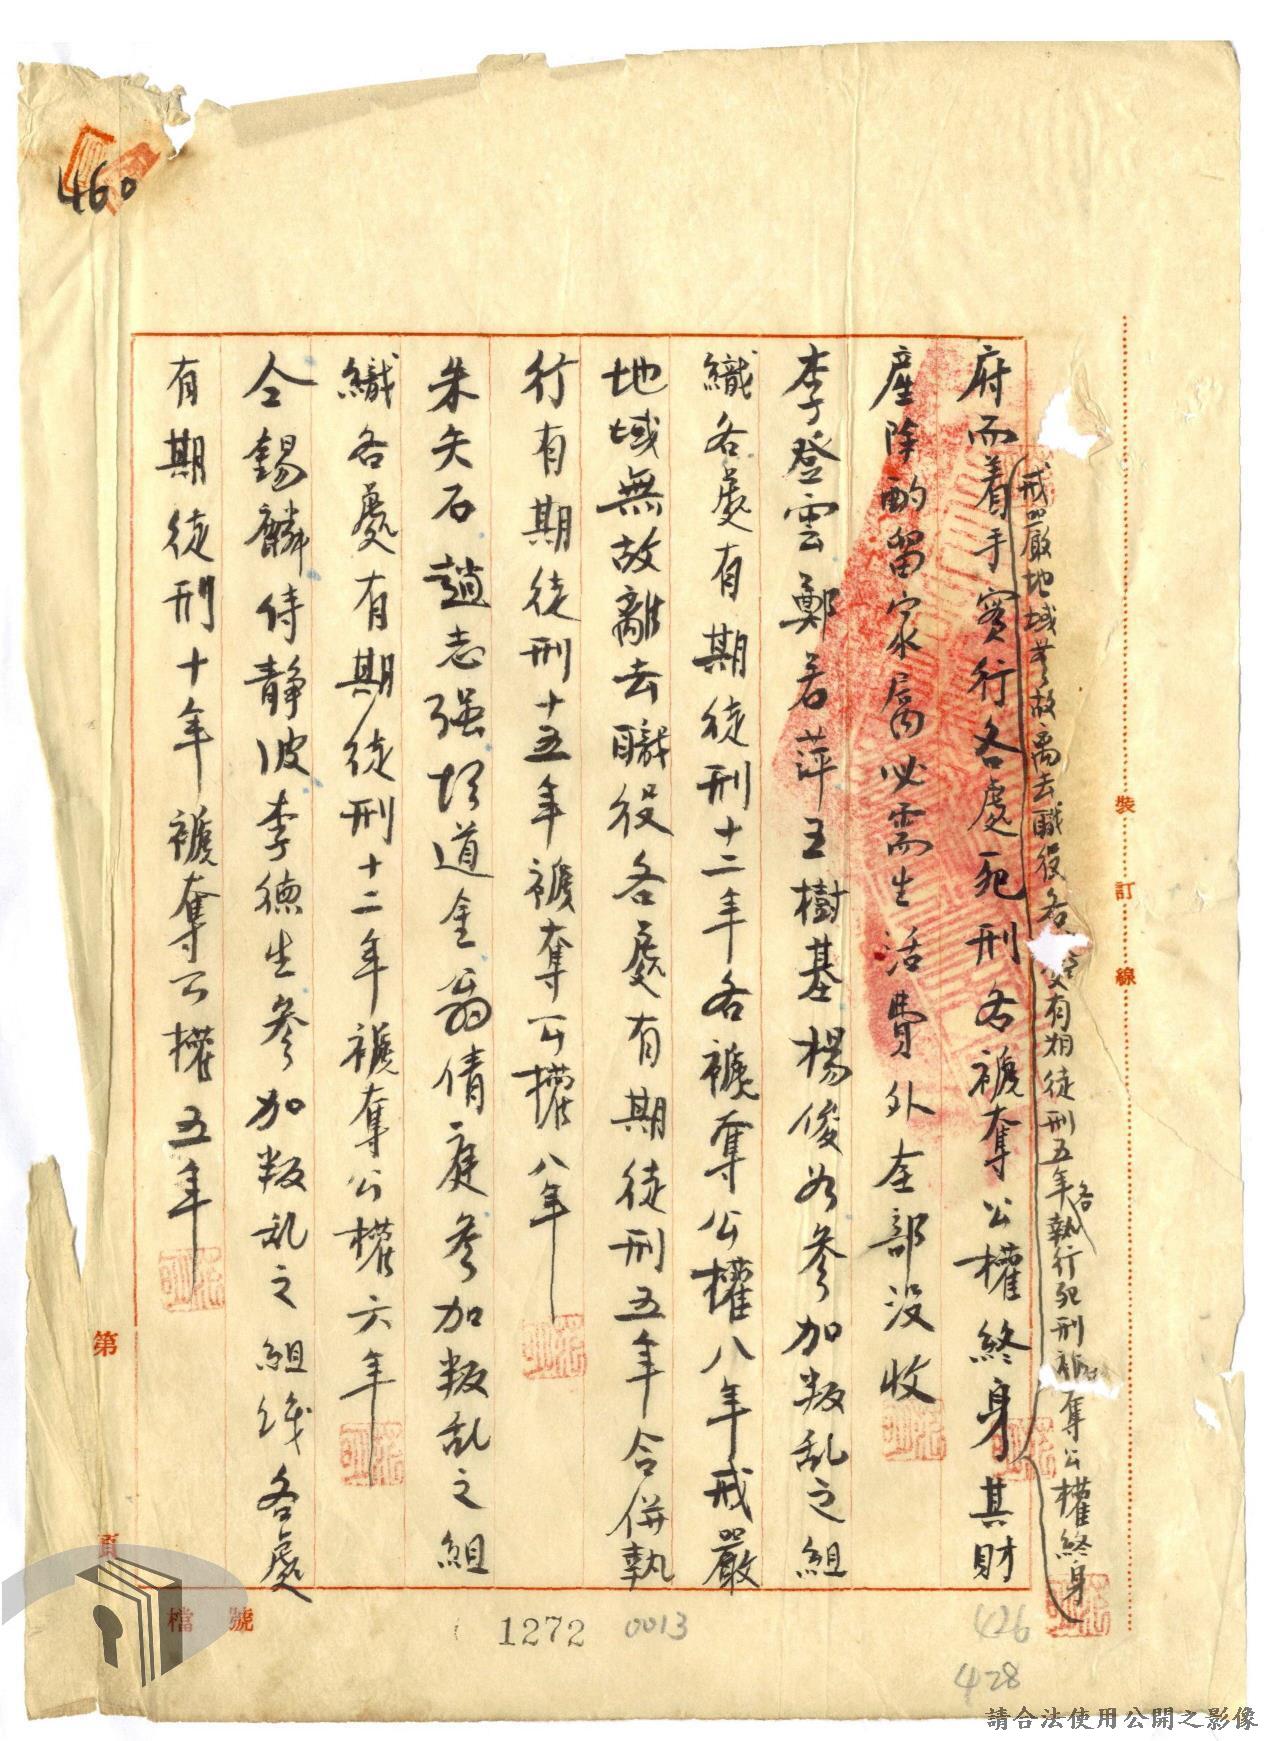 460
戒嚴地域無故离去職役各處有期徒刑五年各執行死刑褫奪公權終身
府而着手實行各處死刑各褫奪公權終身其財
產除酌留家屬必需生活費外全部沒收
李登雲鄭若萍王樹基楊俊 參加叛乱之組
織各處有期徒刑十二年各褫奪公權八年戒嚴
地域無故離去職役各處有期徒刑五年合併執
行有期徒刑十五年褫奪公權八年
朱矢石趙志强 道金翁倩庭參加叛乱之組
織各處有期徒刑十二年褫奪公權六年
仝錫麟侍靜波李德生參加叛乱之組織各處
有期徒刑十年褫奪公權五年
裝訂線
第頁
檔號
1272
0013
426
428
請合法使用公開之影像